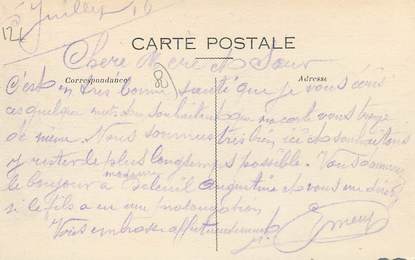 Juillet 16
124
CARTE POSTALE
Chere Mère et Sœur
Correspondance
Adresse
C'est en très bonne santé que je vous écris
ces quelques mots en souhaitant que ma carte vous trouve
de même. Nous sommes très bien ici et souhaitons
y rester le plus longtemps possible. Vous donnerez
le bonjour à madame Augustine et vous me direz
si le fils a eu une prolongation
Vous embrasse affectueusement